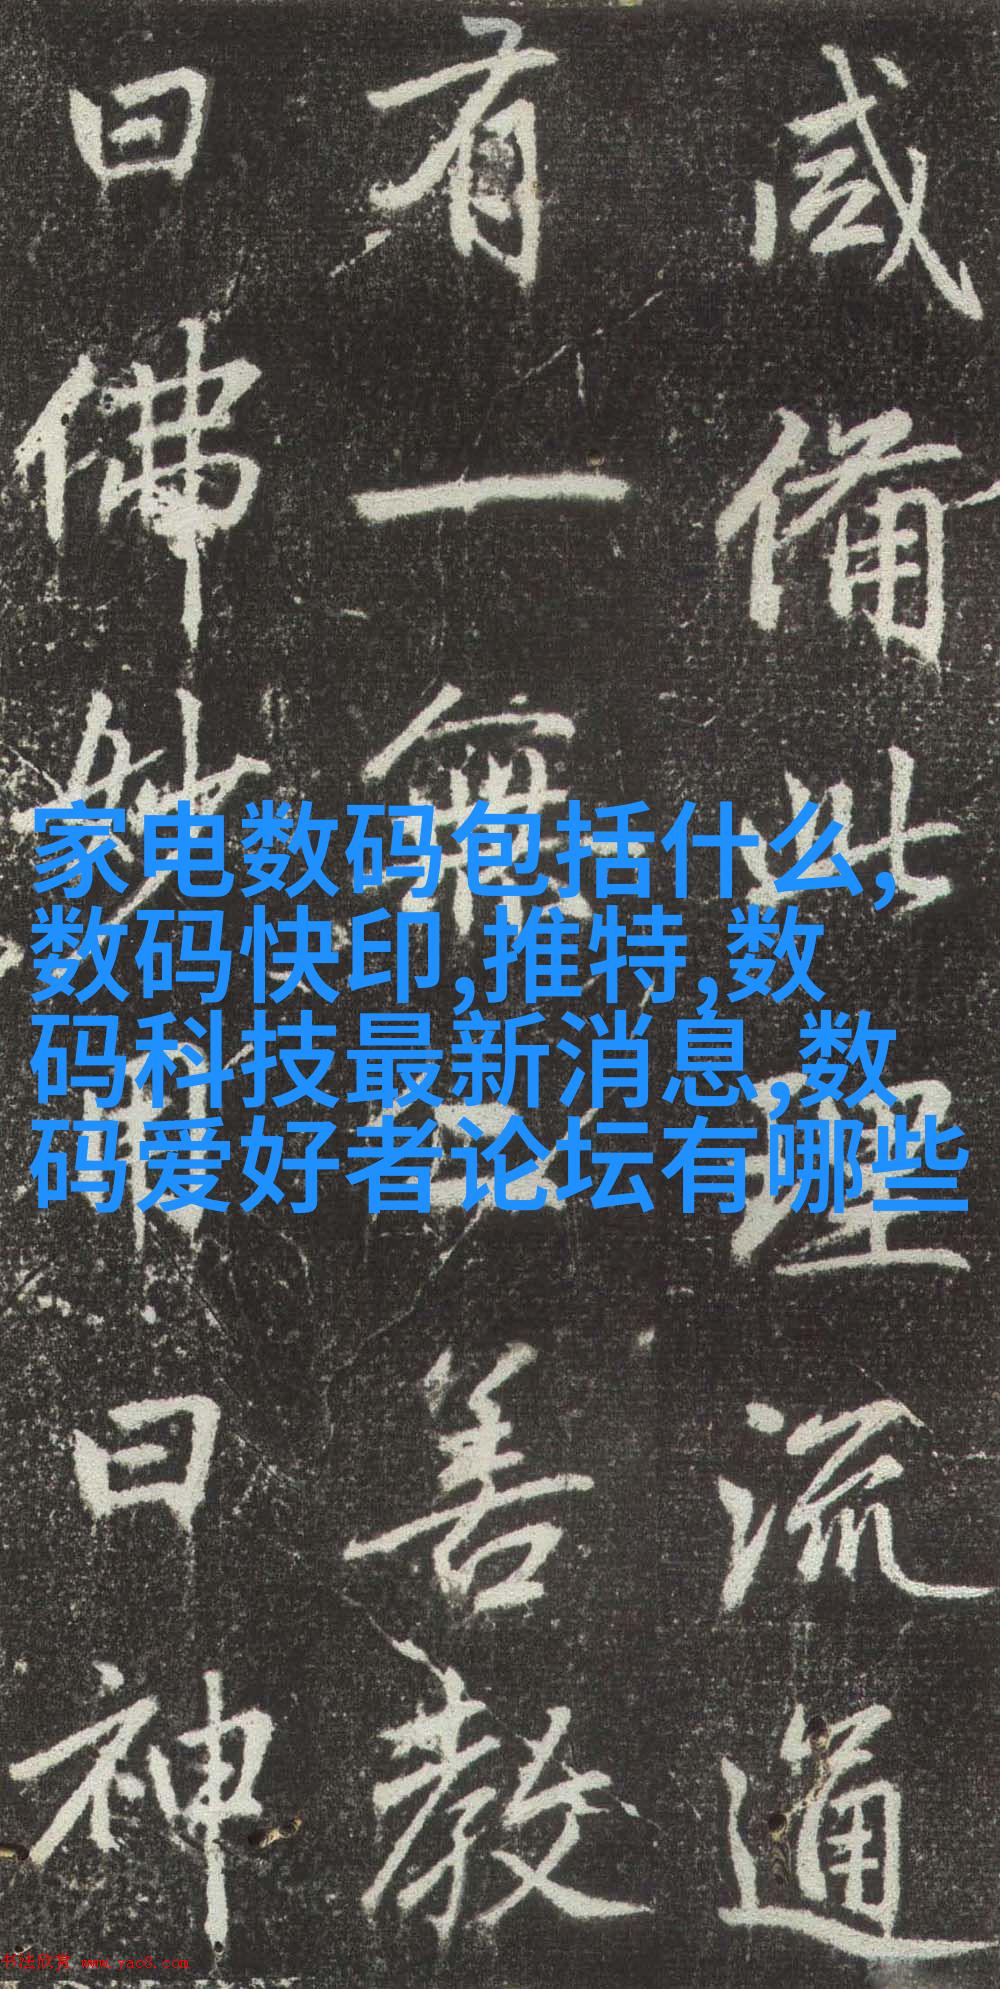 咸備此理流通
有一無二善教
曰佛妙用曰神
家电数码包括什么,
数码快印,推特,数
码科技最新消息,数
码爱好者论坛有哪些
书法欣赏 www.yac8.com